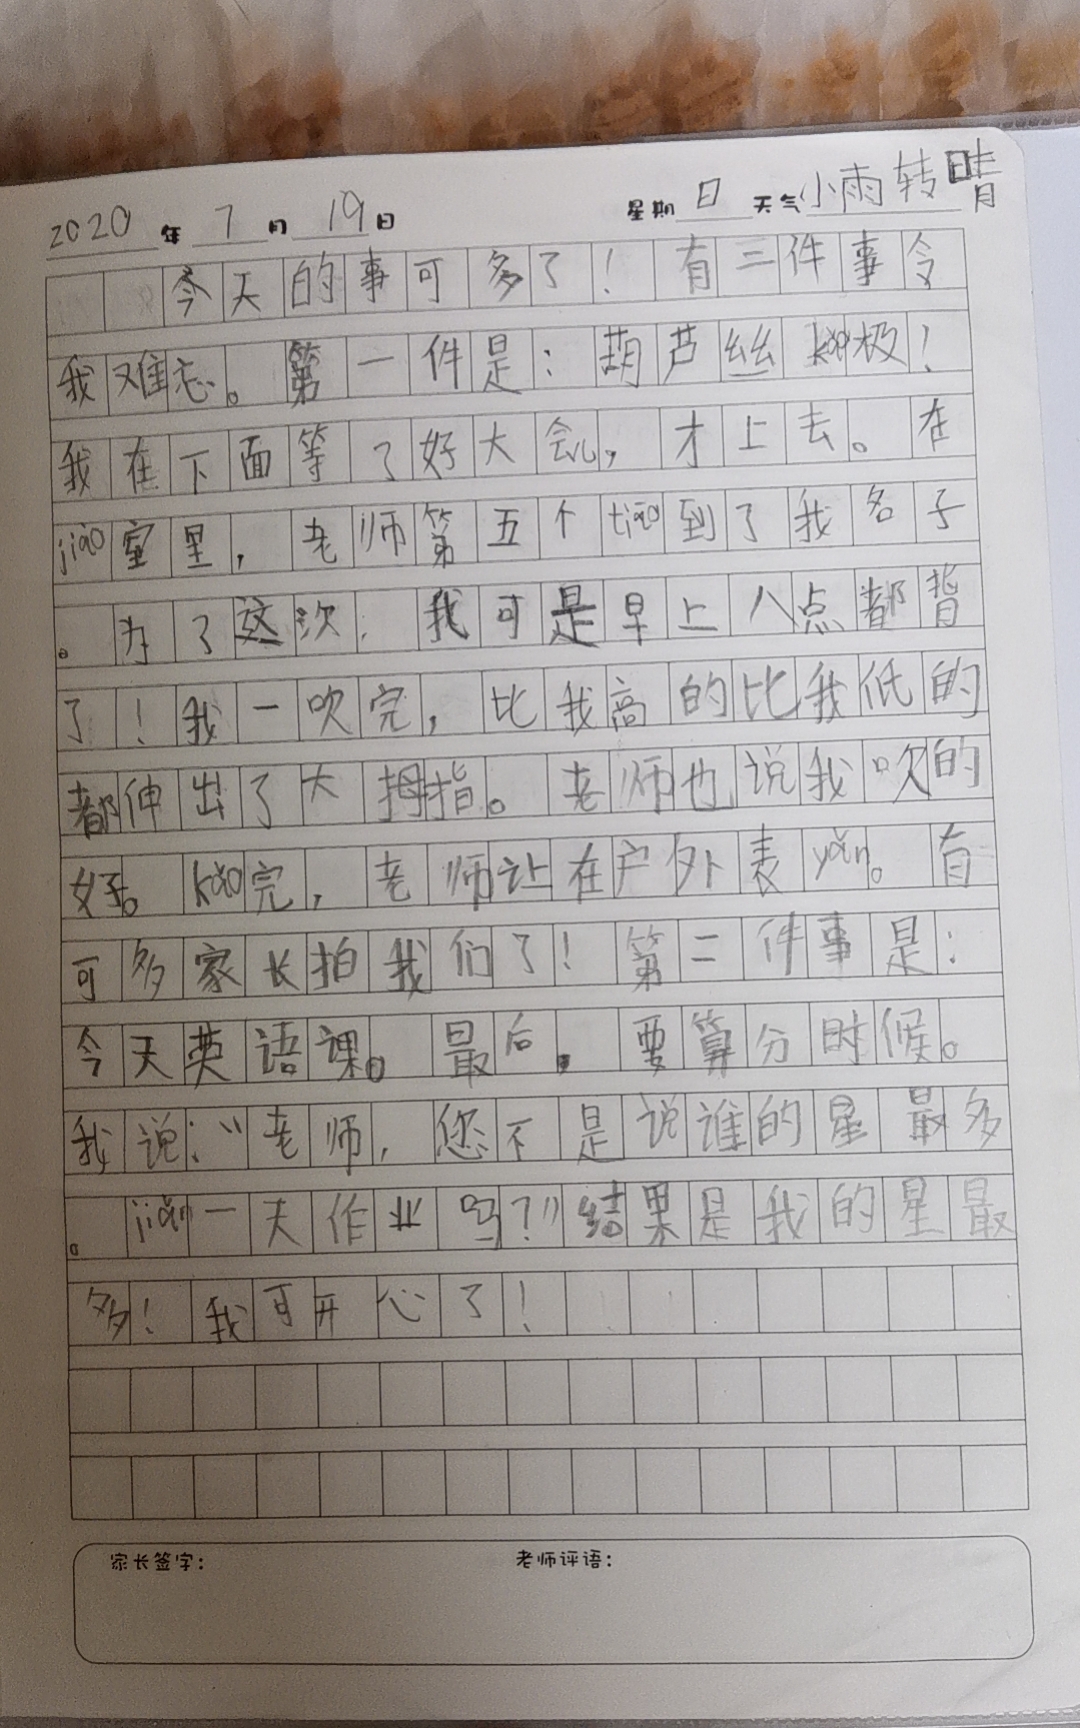 2020年7月19日 星期日 天气小雨转晴
今天的事可多了！有三件事令
我难忘。第一件是：葫芦丝kǎo极！
我在下面等了好大会儿，才上去。在
jiào室里，老师第五个tiāo到了我名子
。为了这次，我可是早上八点都背
了！我一吹完，比我高的比我低的
都伸出了大拇指。老师也说我吹的
好。kǎo完，老师让在户外表yǎn。有
可多家长拍我们了！第二件事是：
今天英语课。最后。要算分时候。
我说：“老师，您不是说谁的星最多
。jiǎn一天作业吗？”结果是我的星最
多！我可开心了！
家长签字： 老师评语：